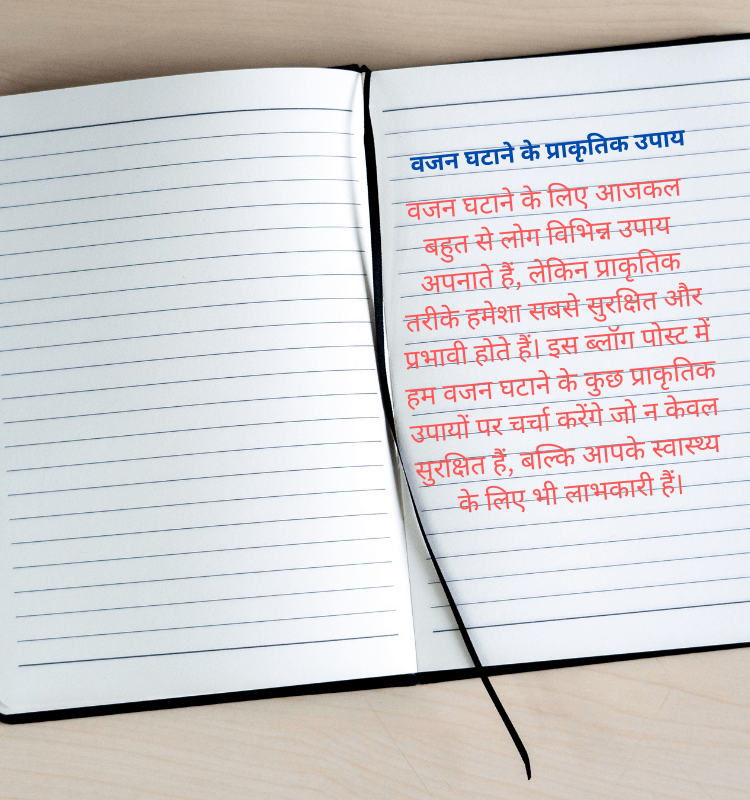 वजन घटाने के प्राकृतिक उपाय
वजन घटाने के लिए आजकल
बहुत से लोग विभिन्न उपाय
अपनाते हैं, लेकिन प्राकृतिक
तरीके हमेशा सबसे सुरक्षित और
प्रभावी होते हैं। इस ब्लॉग पोस्ट में
हम वजन घटाने के कुछ प्राकृतिक
उपायों पर चर्चा करेंगे जो न केवल
सुरक्षित हैं, बल्कि आपके स्वास्थ्य
के लिए भी लाभकारी हैं।